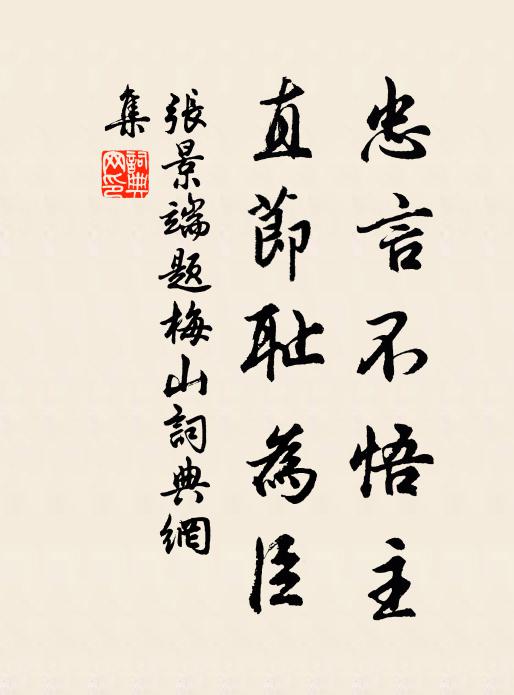 忠言不悟主
直節耻為臣
張景端題梅山詞典網
集
詞典
网印